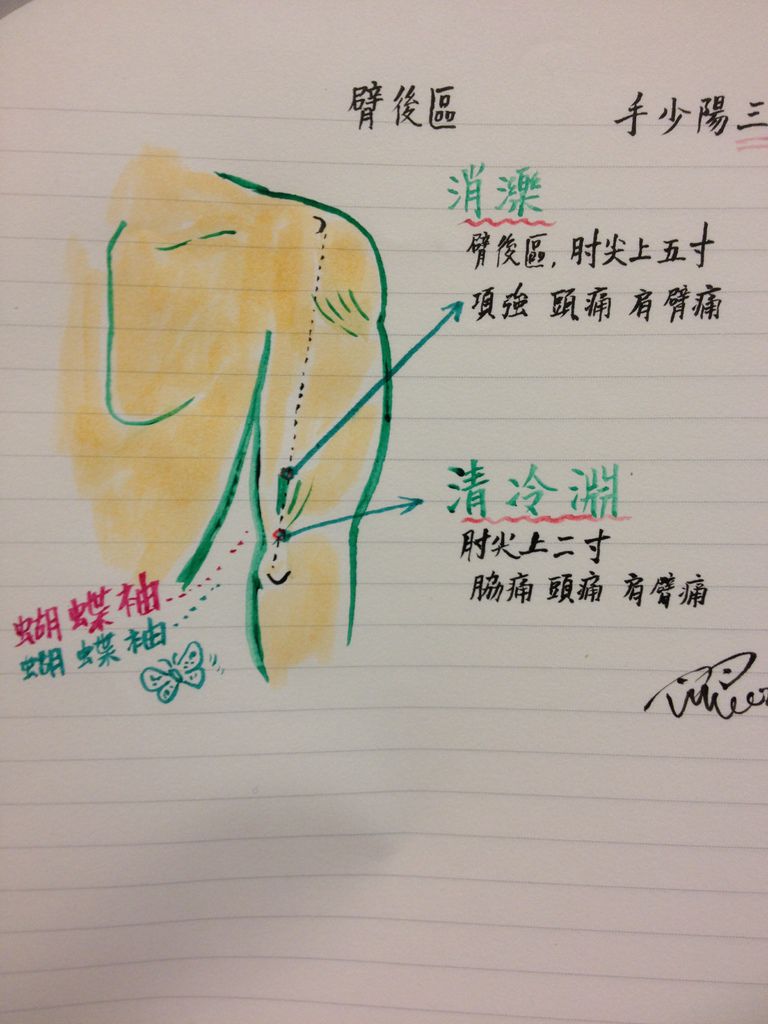 臂後區
手少陽三
消濼
臂後區,肘尖上五寸
項強 頭痛 肩臂痛
清冷淵
肘尖上二寸
脇痛 頭痛 肩臂痛
蝴蝶袖
蝴蝶袖